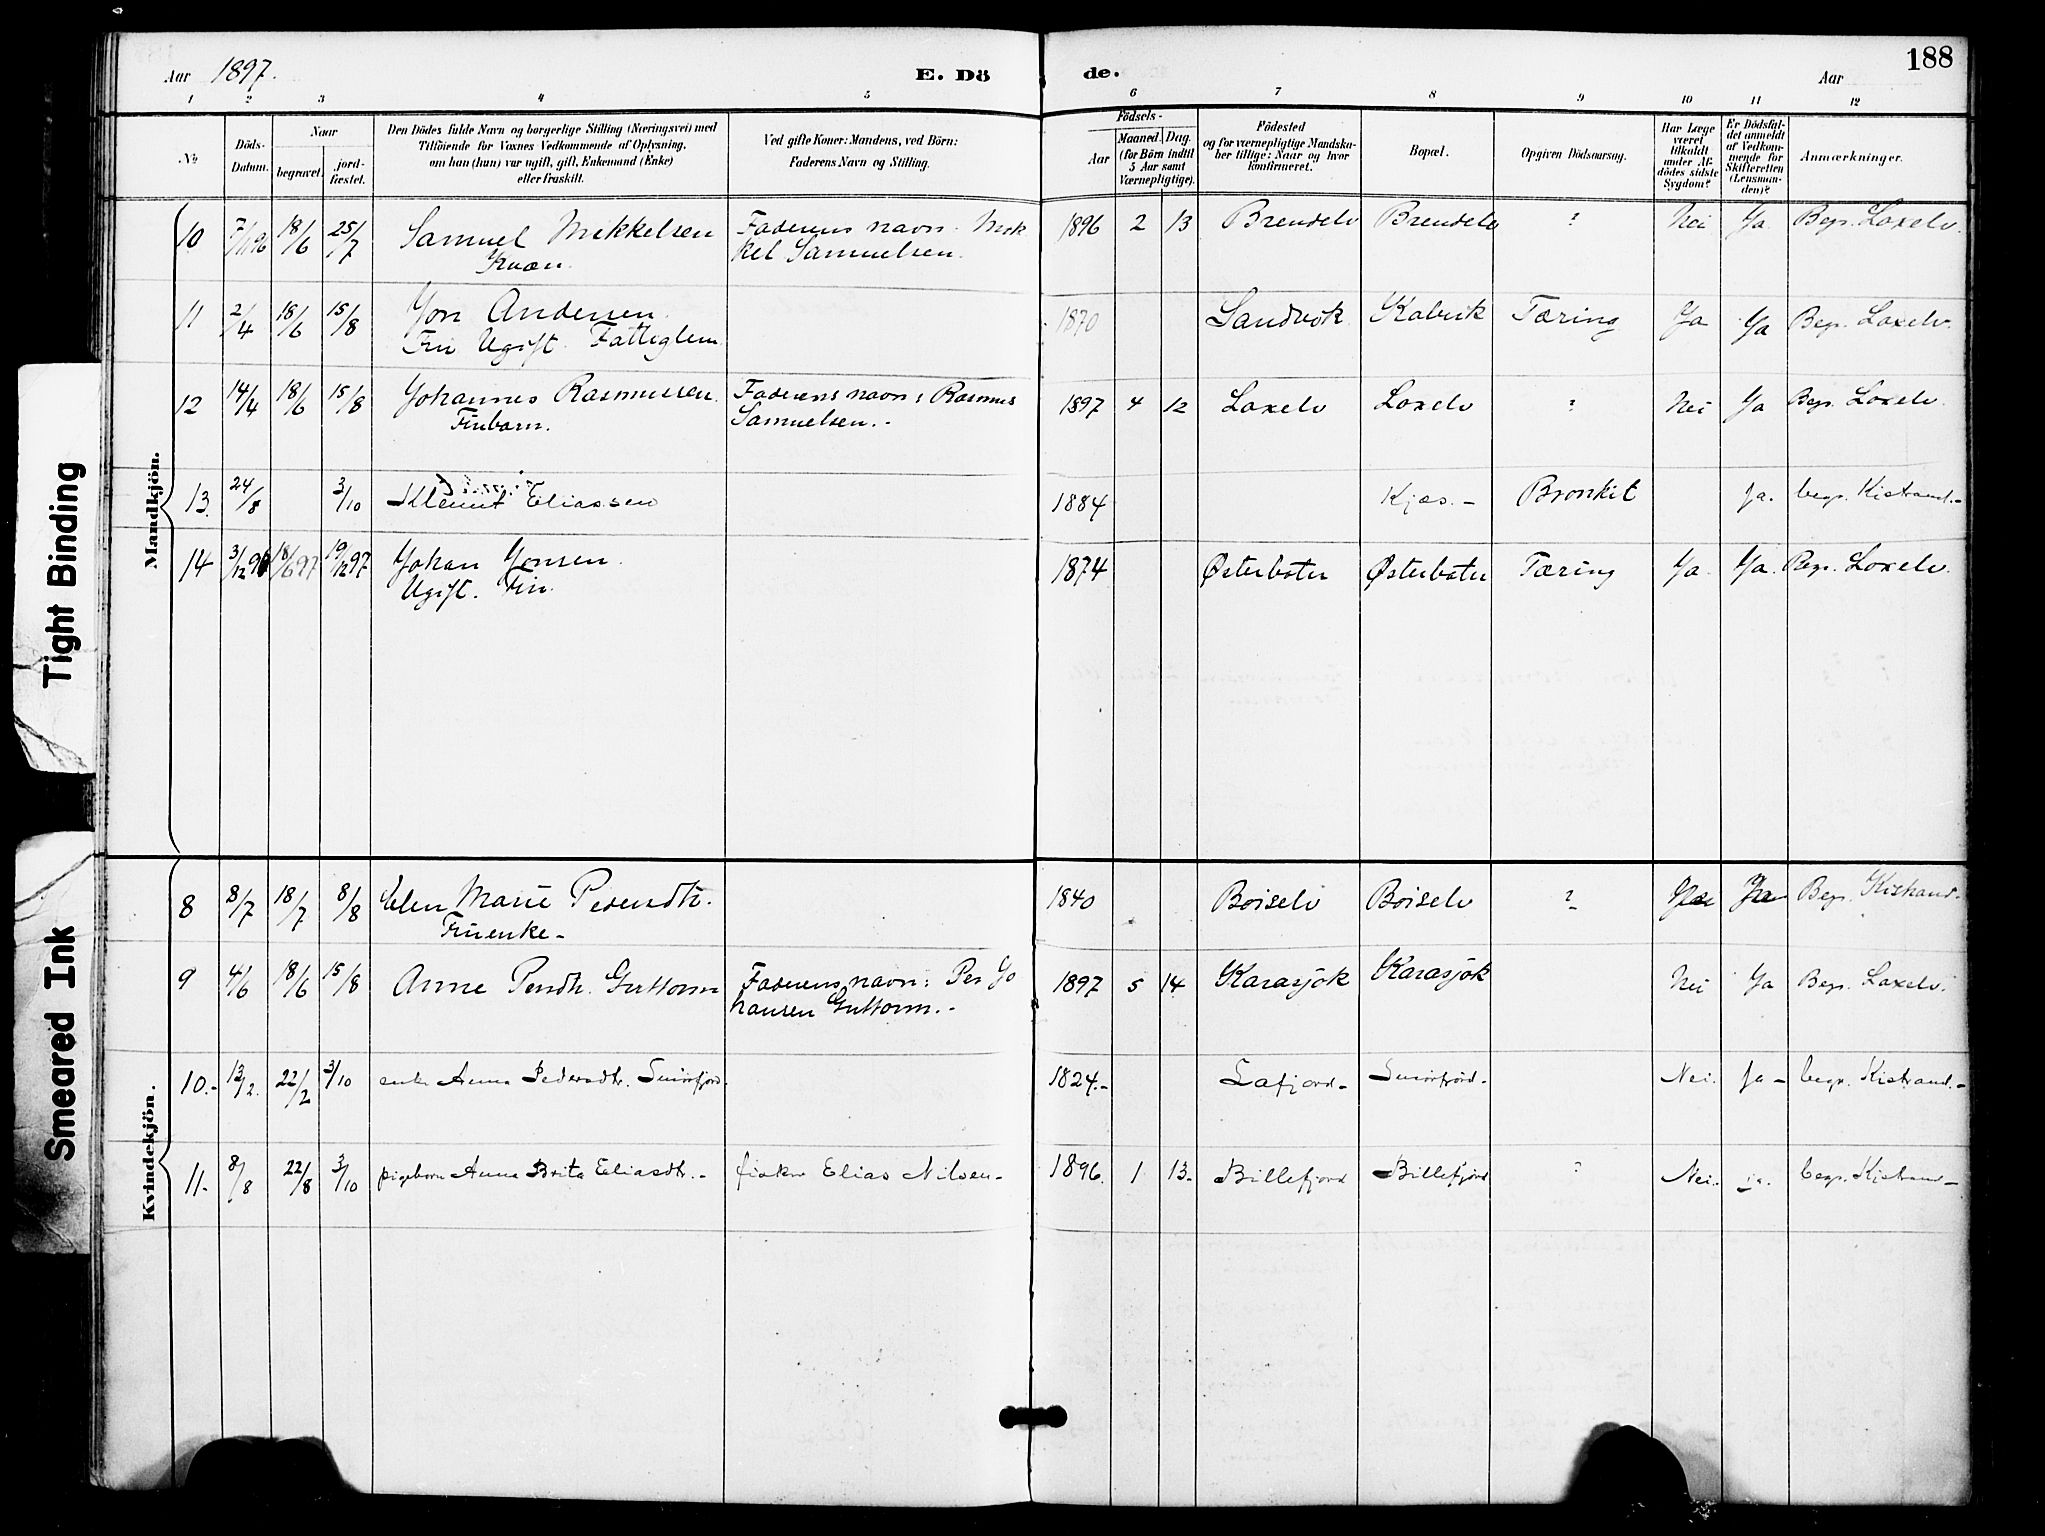 188
Aar 1897.
E. Dö
de.
Aar
1 2 3 4 5 6 7 8 9 10 11 12
No
Döds-
Datum.
Naar
begravet.
jord-
fæstet.
Den Dödes fulde Navn og borgerlige Stilling (Næringsvei) med
Tilföiende for Voxnes Vedkommende af Oplysning,
om han (hun) var ugift, gift, Enkemand (Enke)
eller fraskilt.
Ved gifte Koner: Mandens, ved Börn:
Faderens Navn og Stilling.
Födsels-
Aar
Maaned. Dag.
(for Börn indtil
5 Aar samt
Værnepligtige).
Födested
og for værnepligtige Mandska-
ber tillige: Naar og hvor
konfirmeret.
Bopæl.
Opgiven Dödsaarsag.
Har Læge
været
tilkaldt
under Af-
dödes sidste
Sygdom?
Er Dödsfal-
det anmeldt
af Vedkom-
mende for
Skifteretten
(Lensman-
den)?
Anmærkninger.
Mandkjön.
10 18/6 25/7 Samuel Mikkelsen Faderens navn: Mik 1896 2 13 Brendelv Brendelv ? Nei Ja Begr. Laxelv.
Kvæn. kel Samuelsen.
11 2/4 18/6 15/8 Jon Andersen. 1870 Sandvik Kolvik Tæring Ja Ja Begr. Laxelv.
Fin Ugift. Fattiglem
12 14/4 18/6 15/8 Johannes Rasmussen. Faderens navn: Rasmus 1897 4 12 Laxelv Laxelv ? Nei Ja Begr. Laxelv.
Finbarn. Samuelsen.-
13. 24/8 3/10 Klemet Eliassen 1884 Kjæs.- Bronkit Ja. begr. Kistrand.-
14 18/6 97 19/12 97 Johan Jonsen. 1874 Østerbotn Østerbotn Tæring Ja. Ja. Begr. Laxelv.
Ugift. Fin.
Kvindekjön.
8 8/7 18/7 8/8 Elen Marie Pedersdtr. 1840 Børselv Børselv ?- Ja Begr. Kistrand.
Finenke-
9 4/6 18/6 15/8 Anne Persdtr. Guttorm Faderens navn: Per Jo 1897 5 14 Karasjok Karasjok Nei Ja Begr. Laxelv.
hansen Guttorm.-
10.- 13/2. 22/2 3/10 enke Anna Pedersdtr. Smörfjord. 1824.- Lafjord- Smörfjord.- Nei. Ja- begr. Kistrand.-
11.- 8/8 22/8 3/10 pigebarn Anna Brita Eliasdtr.- fisker Elias Nilsen- 1896. 1 13.- Billefjord Billefjord ? Nei. ja. begr. Kistrand-
Tight Binding
Smeared Ink